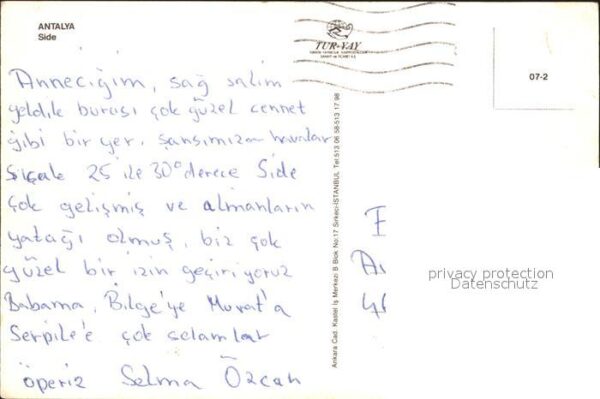 ANTALYA
Side
TUR-YAY
Anneciğim, sağ salim
geldik burası çok güzel cennet
gibi bir yer, şansımıza havalar
Sıcak 25 ile 30° derece Side
çok gelişmiş ve almanların
yatağı olmuş, biz çok
güzel bir izin geçiriyoruz
Babama, Bilge'ye Murat'a
Serpile'e çok selamlar
öperiz Selma Özcan
Ankara Cad. Kastel İş Merkezi B Blok No:17 Sirkeci-İSTANBUL Tel:513 06 58-513 17 98
07-2
privacy protection
Datenschutz